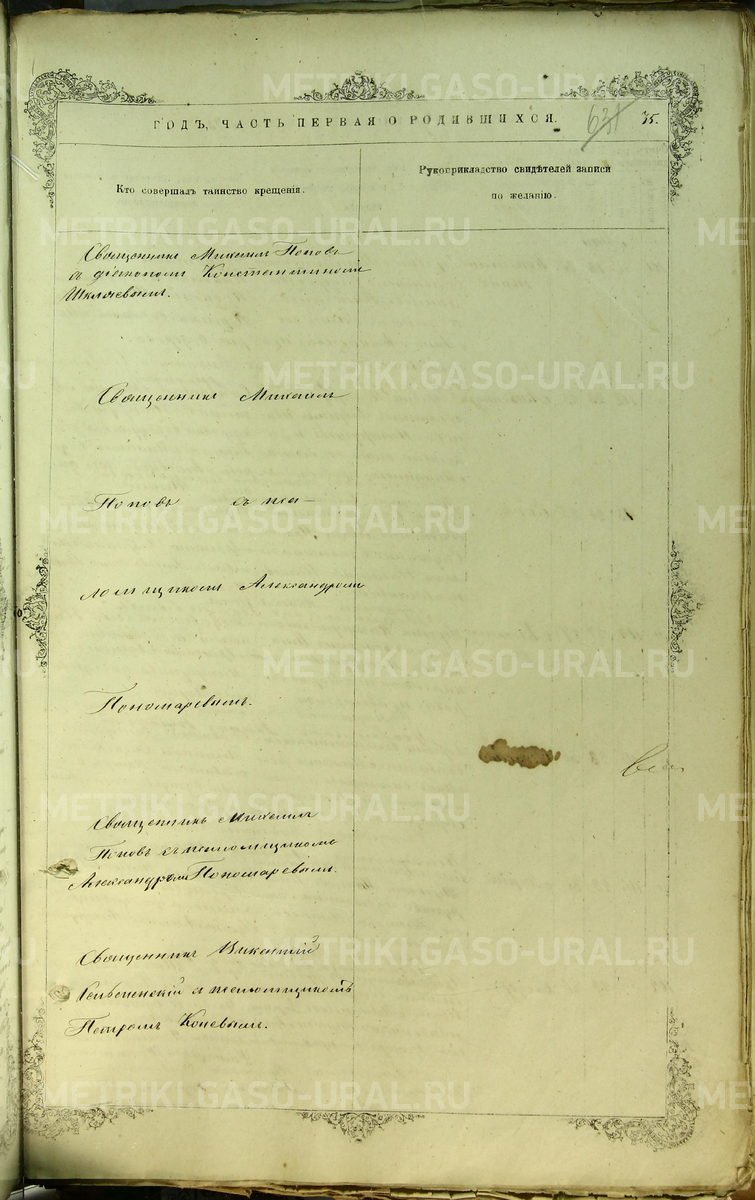 METRIKI.GASO-URAL.RU
ГОДЪ, ЧАСТЬ ПЕРВАЯ О РОДИВШИХСЯ.
35.
Кто совершалъ таинство крещенія.
Рукоприкладство свидѣтелей записи
по желанію.
Священникъ Михаилъ Поповъ
съ діакономъ Константиномъ
Священникъ Михаилъ
Поповъ съ пса-
ломщикомъ Александромъ
Пономаревымъ.
Священникъ Михаилъ
Поповъ съ псаломщикомъ
Александромъ Пономаревымъ.
Священникъ Викентій
съ псаломщикомъ
Петромъ Коневымъ.